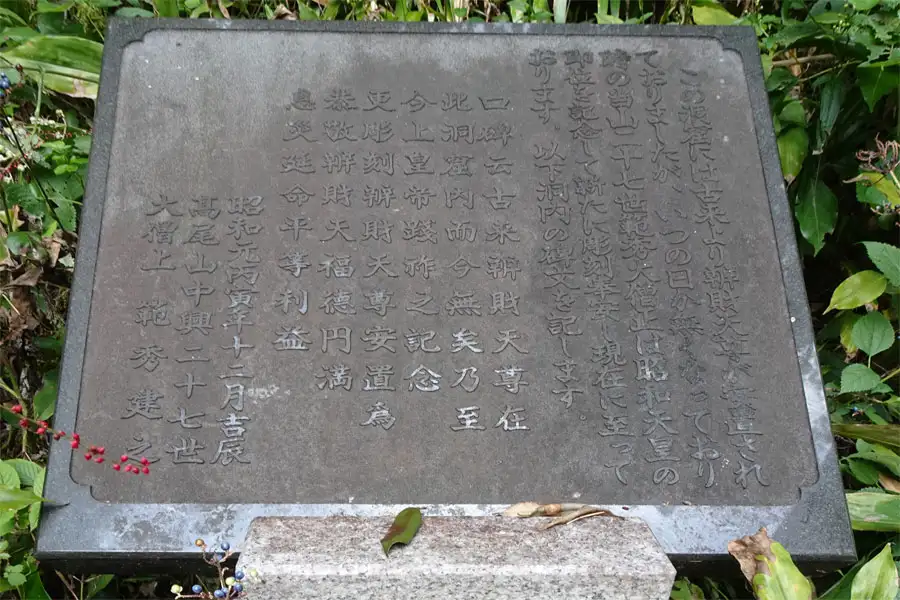 この洞窟には古来より辨財天尊が安置され
ておりましたが、いつの日か無くなっており
時の当山二十七世範秀大僧正は昭和天皇の
即位を記念して新たに彫刻安置し現在に至って
おります。以下洞内の碑文を記します。
口碑云古来辨財天尊在
此洞窟内而今無矣乃至
今上皇帝踐祚之記念
更彫刻辨財天尊安置為
恭敬辨財天福德円満
息災延命平等利益
昭和元丙寅年十二月吉辰
髙尾山中興二十七世
大僧上範秀建之